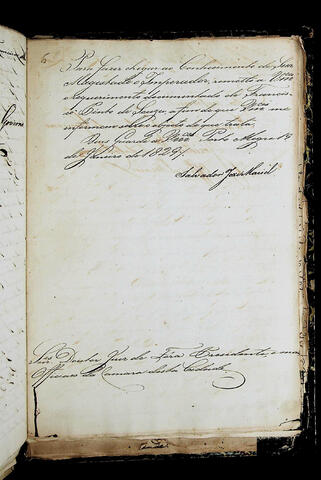 6
Para fazer chegar ao Conhecimento de Sua
Magestade o Imperador, remetto a Vmces
o requerimento documentado de Francis-
co Pinto de Souza, a fim de que Vmces me
informem sobre o objecto de que trata.
Deus Guarde a Vmces Porto Alegre 14
de Janeiro de 1829
Salvador José Maciel
Snr. Doutor Juiz de Fora Presidente, e mais
Officiaes da Camara desta Cidade.